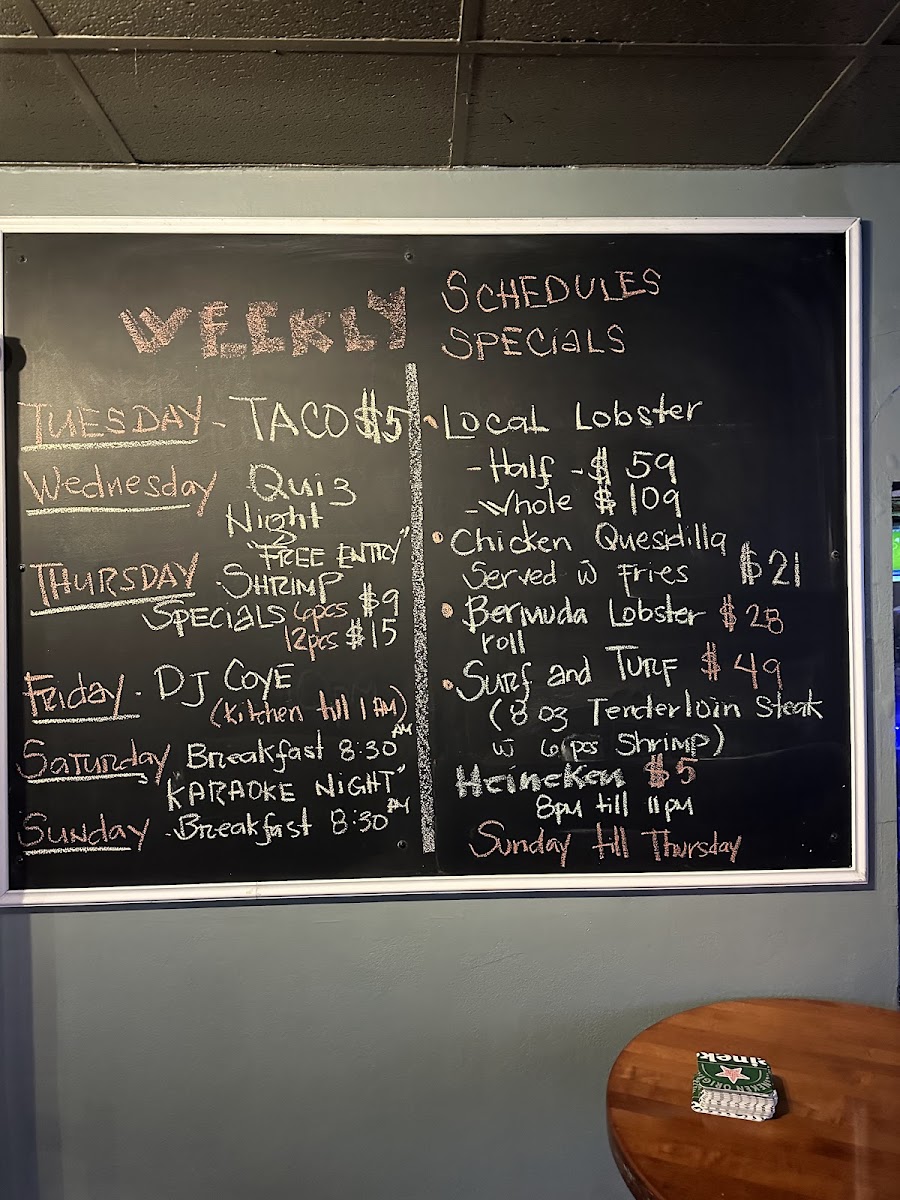 WEEKLY SCHEDULES
SPECIALS
TUESDAY - TACO $5
Wednesday Quiz
Night
"FREE ENTRY"
THURSDAY - SHRIMP
SPECIALS 6pcs $9
12pcs $15
Friday - DJ COYE
(Kitchen till 1 AM)
SATURDAY Breakfast 8:30 AM
KARAOKE NIGHT"
SUNDAY - Breakfast 8:30 AM
• LOCAL LOBSTER
- Half - $ 59
- Whole $ 109
• Chicken Quesidilla
Served w Fries $21
• Bermuda Lobster $28
roll
• Surf and TURF $49
(8 oz Tenderloin Steak
w 6 pcs Shrimp)
Heineken $5
8pm till 11pm
Sunday till Thursday
einek
EKEN ORIG